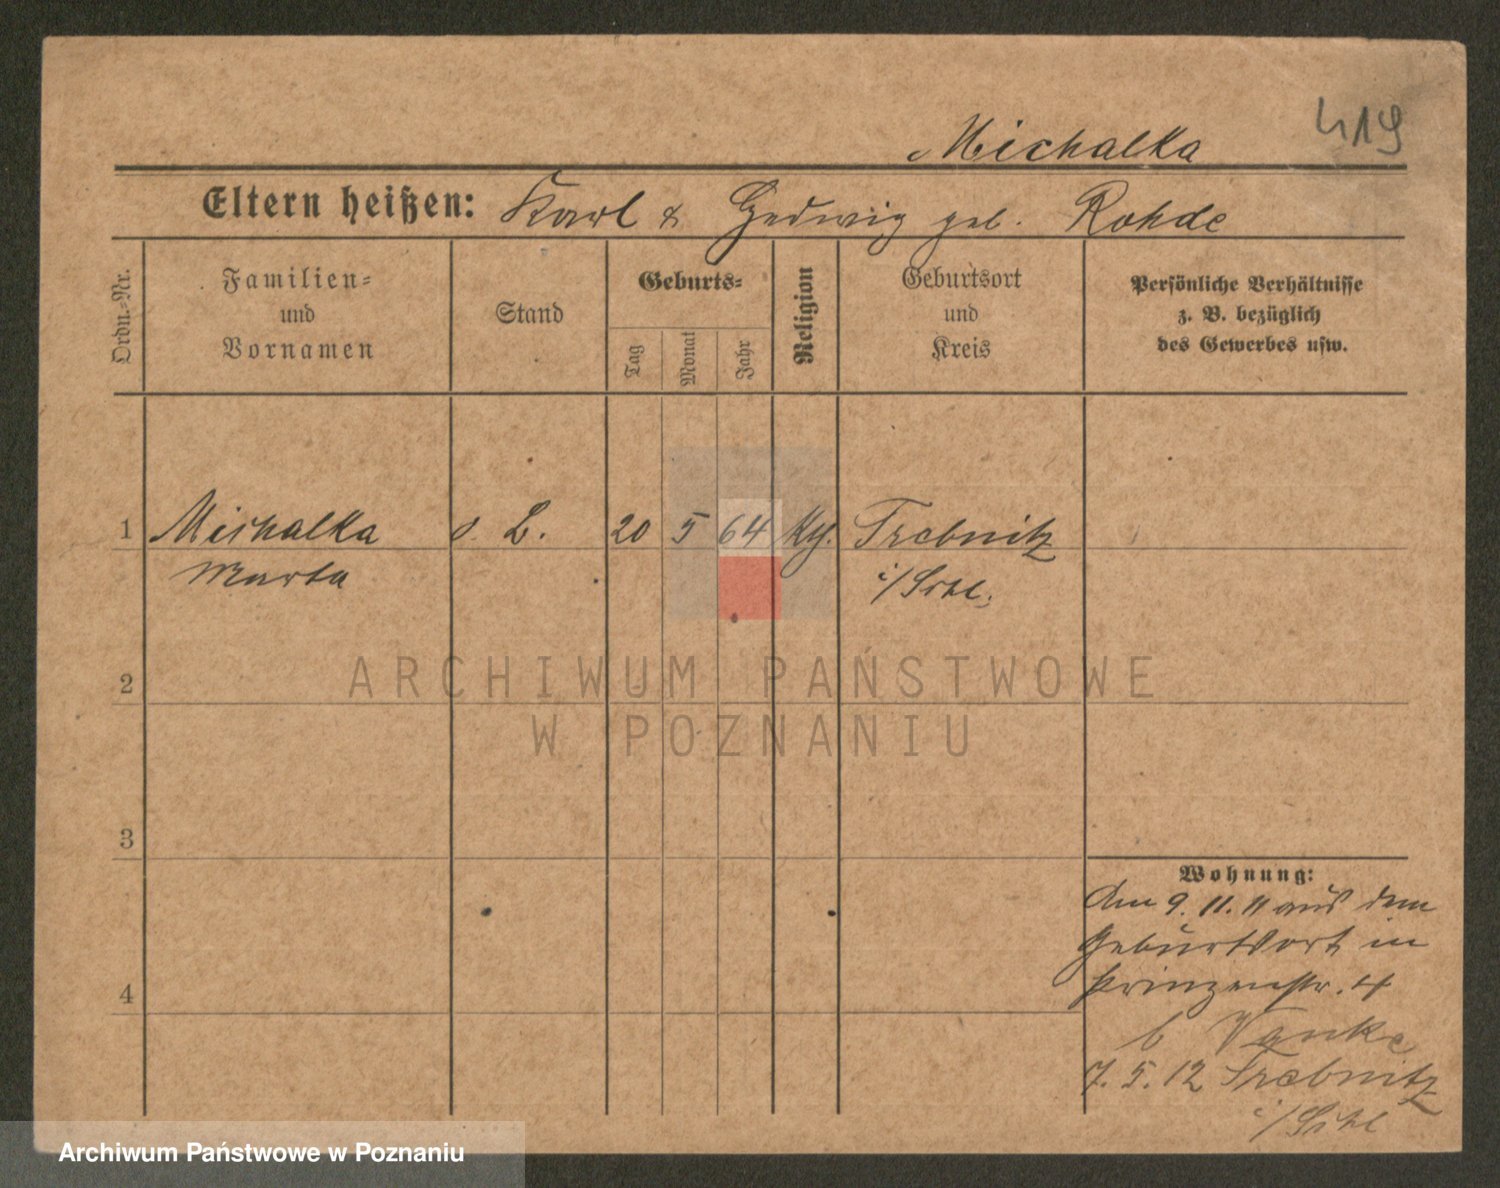 419
Michalka
Eltern heißen: Karl & Hedwig geb. Rohde
Ordn.-Nr.
Familien-
und
Vornamen
Stand
Geburts-
Tag
Monat
Jahr
Religion
Geburtsort
und
Kreis
Persönliche Verhältnisse
z. B. bezüglich
des Gewerbes usw.
1 Michalka o. L. 20 5 64 Trebnitz
Marta i/Schl.
2
3
4
Wohnung:
Am 9. 11. 11 aus dem
Geburtsort in
Prinzenstr. 4
b Vanke
7. 5. 12 Trebnitz
i/Schl
ARCHIWUM PAŃSTWOWE
W POZNANIU
Archiwum Państwowe w Poznaniu